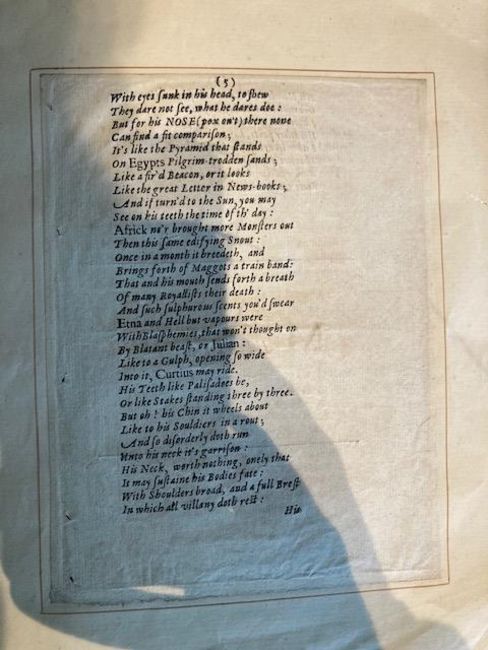 (5)
With eyes ſunk in his head, to ſhew
They dare not ſee, what he dares doe :
But for his NOSE (pox on't) there none
Can find a fit compariſon ;
It's like the Pyramid that ſtands
On Egypts Pilgrim-trodden ſands ;
Like a fir'd Beacon, or it looks
Like the great Letter in News-books ;
And if turn'd to the Sun, you may
See on his teeth the time of th' day :
Africk ne'r brought more Monſters out
Then this ſame edifying Snout :
Once in a month it breedeth, and
Brings forth of Maggots a train band:
That and his mouth ſends forth a breath
Of many Royalliſts their death :
And ſuch ſulphurous ſcents you'd ſwear
Etna and Hell but vapours were
With Blaſphemies, that won't thought on
By Blatant beaſt, or Julian :
Like to a Gulph, opening ſo wide
Into it, Curtius may ride.
His Teeth like Paliſadoes be,
Or like Stakes ſtanding three by three.
But oh ! his Chin it wheels about
Like to his Souldiers in a rout ;
And ſo diſorderly doth run
Unto his neck it's garriſon :
His Neck, worth nothing, onely that
It may ſuſtaine his Bodies fate :
With Shoulders broad, and a full Breſt
In which all villany doth reſt :
His